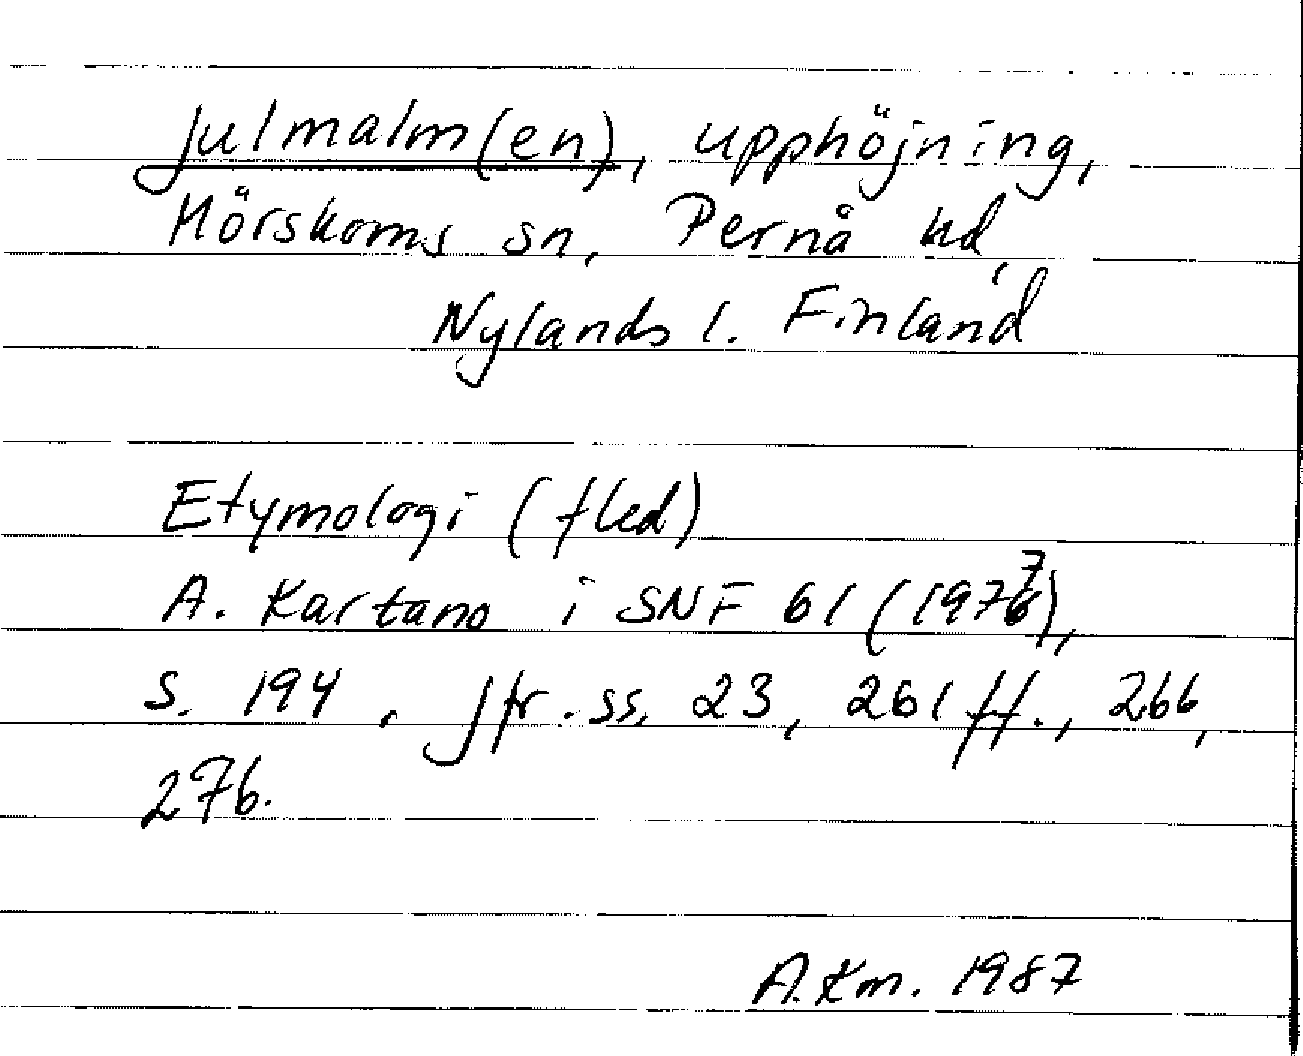 Julmalm(en), upphöjning,
Mörskoms sn, Pernå hd,
Nylands l. Finland
Etymologi (fled)
A. Kartano i SNF 61 (1977),
s. 194, Jfr. ss. 23, 261 ff., 266,
276.
A.Km. 1987